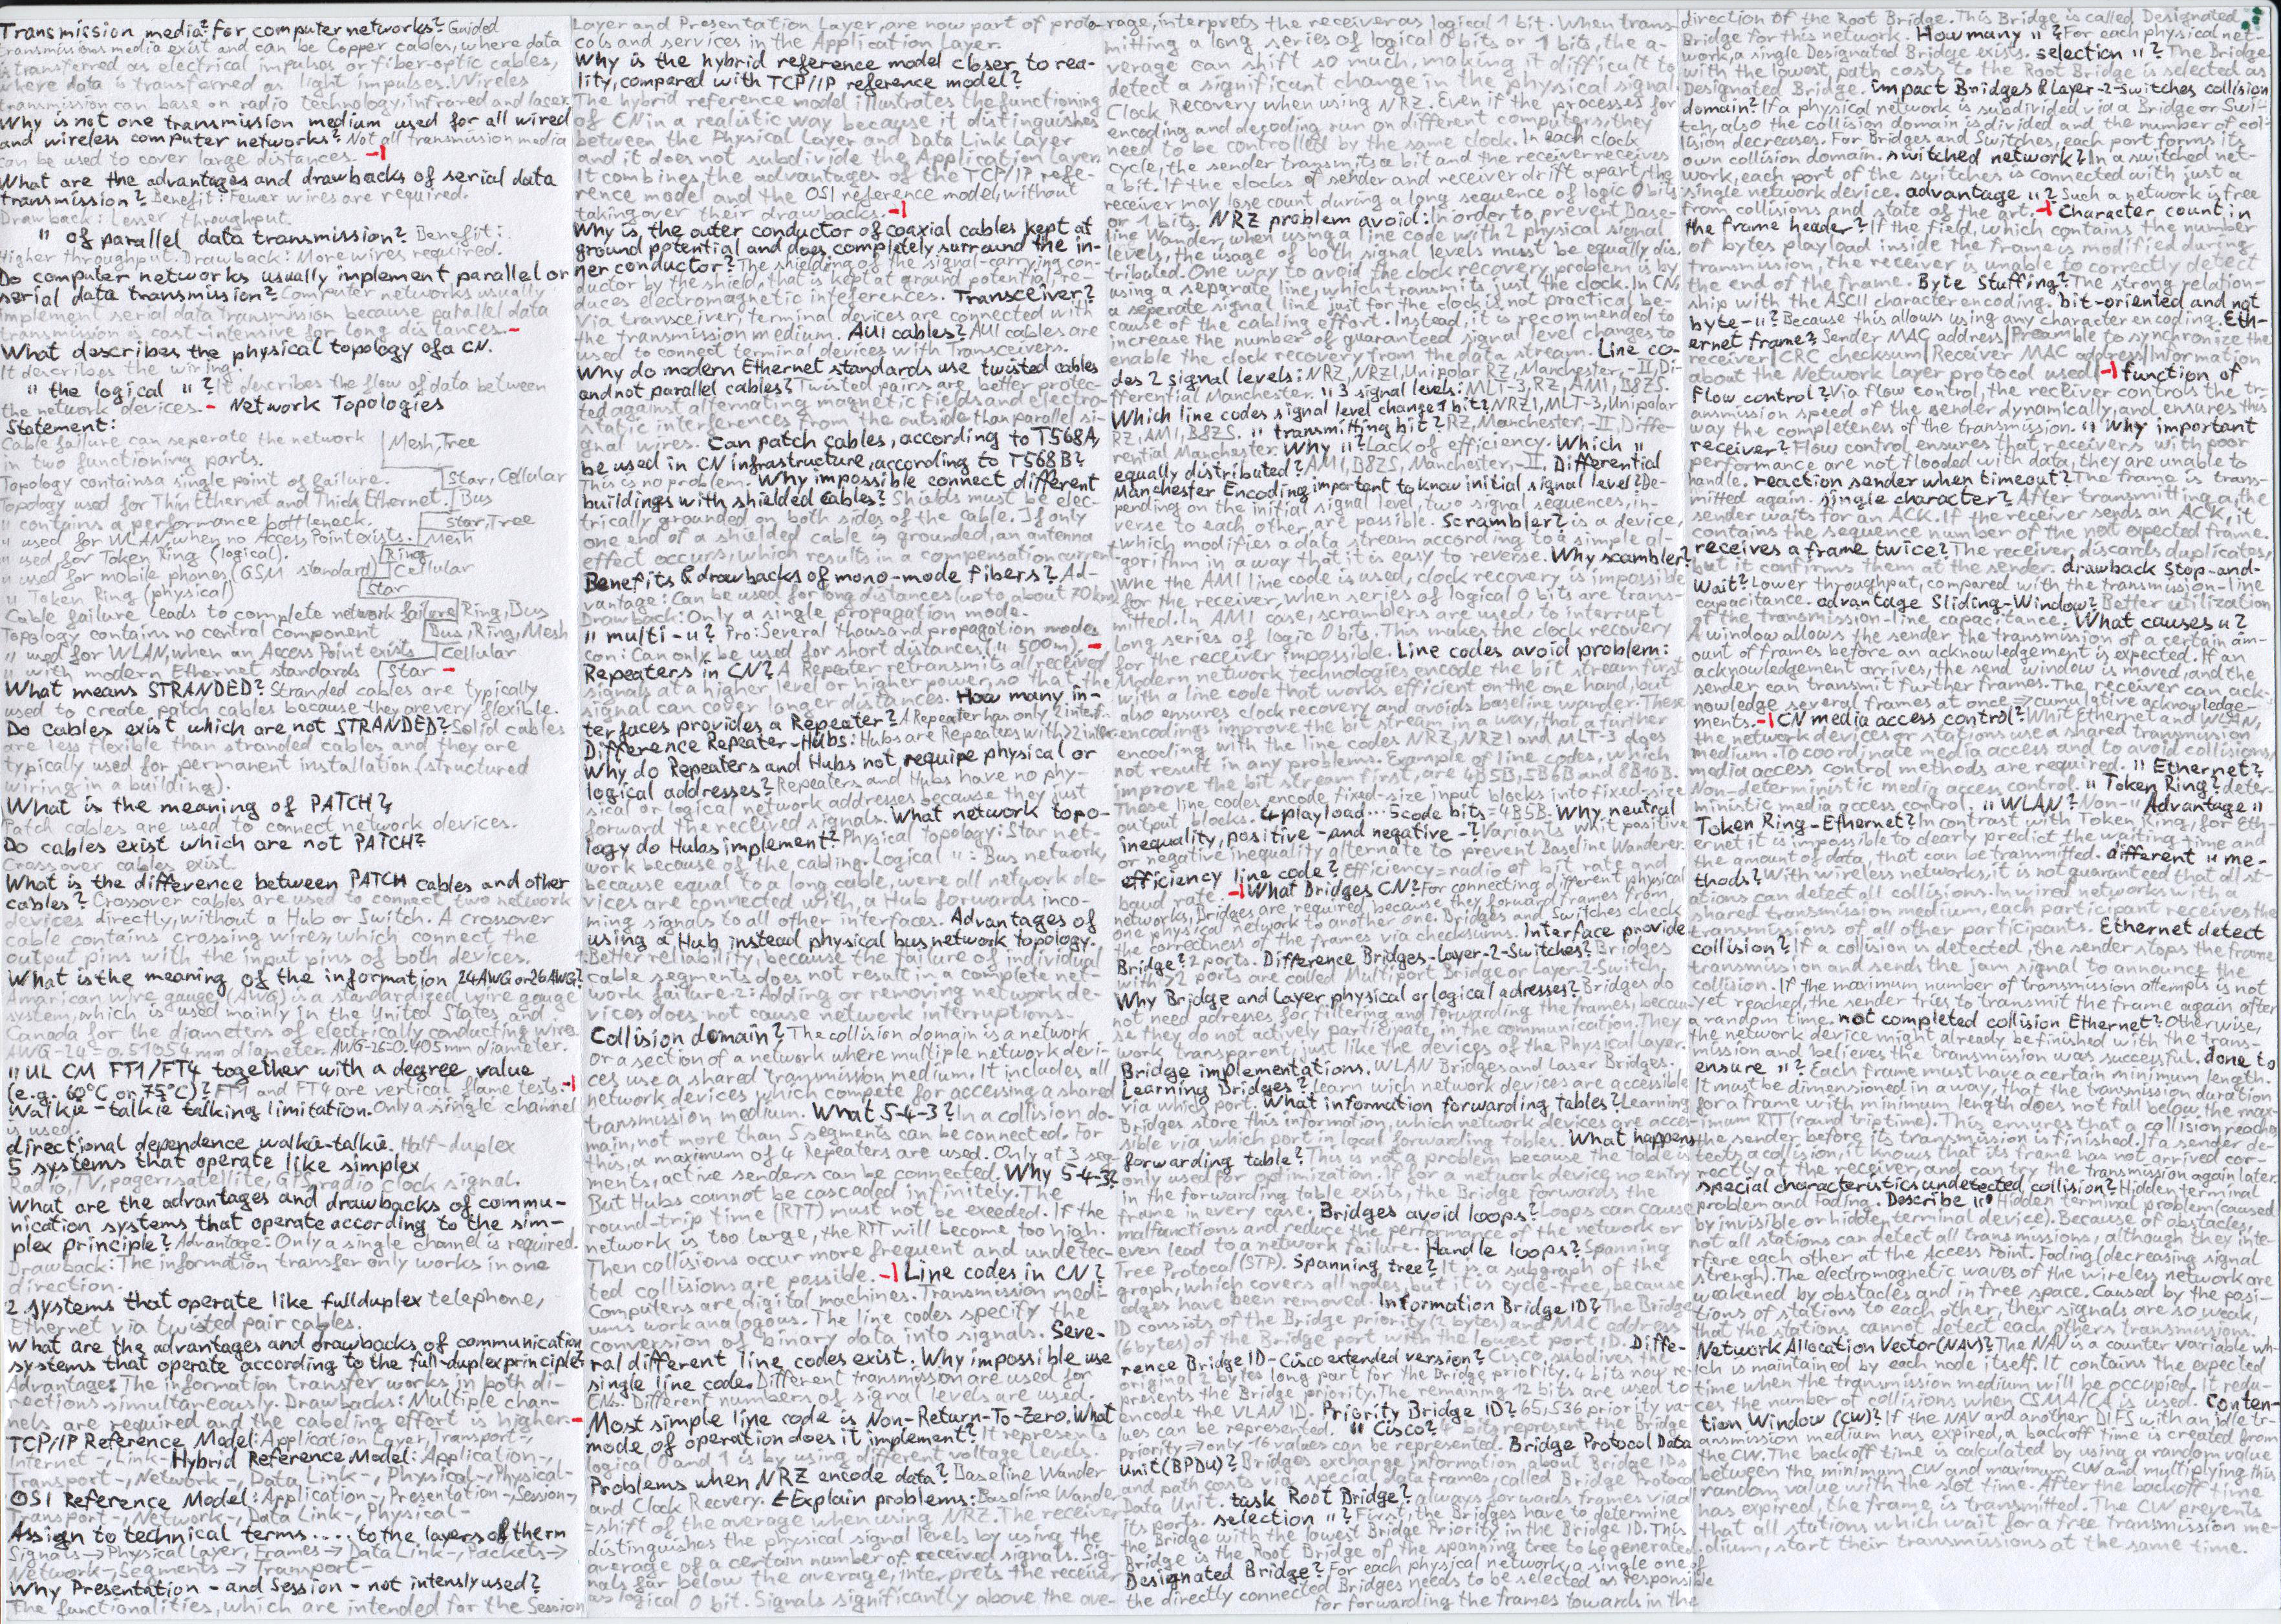 Transmission media? For computer networks? Guided
transmissions media exist and can be Copper cables, where data
is transferred as electrical impulses or fiber-optic cables,
where data is transferred as light impulses. Wireles
transmission can base on radio technology, infrared and laser.
Why is not one transmission medium used for all wired
and wireless computer networks? Not all transmission media
can be used to cover large distances. -1
What are the advantages and drawbacks of serial data
transmission? Benefit: Fewer wires are required.
Drawback: Lesser throughput.
" of parallel data transmission? Benefit:
Higher throughput. Drawback: More wires required.
Do computer networks usually implement parallel or
serial data transmission? Computer networks usually
implement serial data transmission because parallel data
transmission is cost-intensive for long distances. -
What describes the physical topology of a CN.
It describes the wiring.
" the logical "? It describes the flow of data between
the network devices. - Network Topologies
Statement:
Cable failure can seperate the network | Mesh, Tree
in two functioning parts.
Topology contains a single point of failure. | Star, Cellular
Topology used for Thin Ethernet and Thick Ethernet | Bus
" contains a performance bottleneck. | Star, Tree
" used for WLAN, when no Access Point exists. | Mesh
" used for Token Ring (logical). | Ring
" used for mobile phones (GSM standard) | Cellular
" Token Ring (physical) | Star
Cable failure leads to complete network failure | Ring, Bus
Topology contains no central component | Bus, Ring, Mesh
" used for WLAN, when an Access Point exists | Cellular
" with modern Ethernet standards | Star -
What means STRANDED? Stranded cables are typically
used to create patch cables because they are very flexible.
Do cables exist which are not STRANDED? Solid cables
are less flexible than stranded cables and they are
typically used for permanent installation (structured
wiring in a building).
What is the meaning of PATCH?
Patch cables are used to connect network devices.
Do cables exist which are not PATCH?
Crossover cables exist.
What is the difference between PATCH cables and other
cables? Crossover cables are used to connect two network
devices directly, without a Hub or Switch. A crossover
cable contains crossing wires, which connect the
output pins with the input pins of both devices.
What is the meaning of the information 24AWG or 26AWG?
Amarican wire gauge (AWG) is a standardized wire gauge
system, which is used mainly in the United States and
Canada for the diameters of electrically conducting wires.
AWG-24 = 0.51054 mm diameter. AWG-26=0.405mm diameter.
" UL CM FT1/FT4 together with a degree value
(e.g. 60°C or 75°C)? FT1 and FT4 are vertical flame tests. -1
Walkie-talkie talking limitation. Only a single channel
is used.
directional dependence walkie-talkie. Half-duplex
5 systems that operate like simplex
Radio, TV, pager, satellite, GPS, radio clock signal.
What are the advantages and drawbacks of commu-
nication systems that operate according to the sim-
plex principle? Advantage: Only a single channel is required.
Drawback: The information transfer only works in one
direction.
2 systems that operate like fullduplex telephone,
Ethernet via twisted pair cables.
What are the advantages and drawbacks of communication
systems that operate according to the full-duplex principle?
Advantage: The information transfer works in both di-
rections simultaneously. Drawbacks: Multiple chan-
nels are required and the cabeling effort is higher. -
TCP/IP Reference Model: Application Layer, Transport-,
Internet-, Link- Hybrid Reference Model: Application-,
Transport-, Network-, Data Link-, Physical-
OSI Reference Model: Application-, Presentation-, Session-,
Transport-, Network-, Data Link-, Physical-
Assign to technical terms .... to the layers of therm
Signals → Physical Layer, Frames → Data Link-, Packets →
Network-, Segments → Transport-
Why Presentation- and Session- not intensly used?
The functionalities, which are intended for the Session
Layer and Presentation Layer, are now part of proto-
cols and services in the Application Layer.
Why is the hybrid reference model closer to rea-
lity, compared with TCP/IP reference model?
The hybrid reference model illustrates the functioning
of CN in a realistic way because it distinguishes
between the Physical Layer and Data Link Layer
and it does not subdivide the Application Layer.
It combines the advantages of the TCP/IP refe-
rence model and the OSI reference model, without
taking over their drawbacks. -1
Why is, the outer conductor of coaxial cables kept at
ground potential and does completely surround the in-
ner conductor? The shielding of the signal-carrying con-
ductor by the shield, that is kept at ground potential, re-
duces electromagnetic inteferences. Transceiver?
Via transceiver, terminal devices are connected with
the transmission medium. AUI cables? AUI cables are
used to connect terminal devices with Transceivers.
Why do modern Ethernet standards use twisted cables
and not parallel cables? Twisted pairs are better protec-
ted against alternating magnetic fields and electro-
static interferences from the outside than parallel si-
gnal wires. Can patch cables, according to T568A,
be used in CN infrastructure, according to T568B?
This is no problem. Why impossible connect different
buildings with shielded cables? Shields must be elec-
trically grounded on both sides of the cable. If only
one end of a shielded cable is grounded, an antenna
effect occurs, which results in a compensation current
Benefits & drawbacks of mono-mode fibers? Ad-
vantage: Can be used for long distances (up to, about 70km).
Drawback: Only a single propagation mode.
" multi-"? Pro: Several thousand propagation modes
con: Can only be used for short distances (" 500m). -
Repeaters in CN? A Repeater retransmits all received
signals at a higher level or higher power, so that the
signal can cover longer distances. How many in-
terfaces provides a Repeater? A Repeater has only 2 interf.
Difference Repeater-Hubs: Hubs are Repeaters with >2 inter
Why do Repeaters and Hubs not require physical or
logical addresses? Repeaters and Hubs have no phy-
sical or logical network addresses because they just
forward the received signals. What network topo-
logy do Hubs implement? Physical topology: Star net-
work because of the cabling. Logical ": Bus network,
because equal to a long cable, were all network de-
vices are connected with, a Hub forwards inco-
ming signals to all other interfaces. Advantages of
using a Hub instead physical bus network topology.
1. Better reliability, because the failure of individual
cable segments does not result in a complete net-
work failure. 2: Adding or removing network de-
vices does not cause network interruptions.
Collision domain? The collision domain is a network
or a section of a network where multiple network devi-
ces use a shared transmission medium. It includes all
network devices which compete for accessing a shared
transmission medium. What 5-4-3? In a collision do-
main, not more than 5 segments can be connected. For
this, a maximum of 4 Repeaters are used. Only at 3 seg-
ments, active senders can be connected. Why 5-4-3?
But Hubs cannot be cascaded infinitely. The
round-trip time (RTT) must not be exeeded. If the
network is too large, the RTT will become too high.
Then collisions occur more frequent and undetec-
ted collisions are possible. -1 Line codes in CN?
Computers are digital machines. Transmission medi-
ums work analogous. The line codes specify the
conversion of binary data into signals. Seve-
ral different line codes exist. Why impossible use
single line code. Different transmission are used for
CNs. Different numbers of signal levels are used.
- Most simple line code is Non-Return-To-Zero. What
mode of operation does it implement? It represents
logical 0 and 1 is by using different voltage levels.
Problems when NRZ encode data? Baseline Wander
and Clock Recvery. Explain problems: Baseline Wander
= shift of the average when using NRZ. The receiver
distinguishes the physical signal levels by using the
average of a certain number of received signals. Sig-
nals far below the average, interprets the receiver
as logical 0 bit. Signals significantly above the ave-
rage, interprets the receiver as logical 1 bit. When trans-
mitting a long series of logical 0 bits or 1 bits, the a-
verage can shift so much, making it difficult to
detect a significant change in the physical signal.
Clock Recovery when using NRZ. Even if the processes for
encoding and decoding run on different computers, they
need to be controlled by the same clock. In each clock
cycle, the sender transmits a bit and the receiver receives
a bit. If the clocks of sender and receiver drift apart, the
receiver may lose count during a long sequence of logic 0 bits
or 1 bits. NRZ problem avoid: In order to prevent Base-
line Wander, when using a line code with 2 physical signal
levels, the usage of both signal levels must be equally dis-
tributed. One way to avoid the clock recovery problem is by
using a separate line, which transmits just the clock. In CN,
a seperate signal line just for the clock is not practical be-
cause of the cabling effort. Instead, it is recommended to
increase the number of guaranteed signal level changes to
enable the clock recovery from the data stream. Line co-
des 2 signal levels: NRZ, NRZ1, Unipolar RZ, Manchester, -II, Di-
fferential Manchester. " 3 signal levels: MLT-3, RZ, AM1, B8ZS.
Which line codes signal level change 1 bit? NRZ1, MLT-3, Unipolar
RZ, AM1, B8ZS. " transmitting bit? RZ, Manchester, -II, Diffe-
rential Manchester. Why "? Lack of efficiency. Which "
equally distributed? AM1, B8ZS, Manchester, -II. Differential
Manchester Encoding important to know initial signal level? De-
pending on the initial signal level, two signal sequences, in-
verse to each other, are possible. Scrambler? is a device,
which modifies a data stream according to a simple al-
gorithm in a way that it is easy to reverse. Why scambler?
Whe the AM1 line code is used, clock recovery is impossible
for the receiver, when series of logical 0 bits are trans-
mitted. In AM1 case, scramblers are used, to interrupt
long series of logic 0 bits. This makes the clock recovery
for the receiver impossible. Line codes avoid problem:
Modern network technologies encode the bit stream first
with a line code that works efficient on the one hand, but
also ensures clock recovery and avoids baseline wander. These
encodings improve the bit stream in a way, that a further
encoding with the line codes NRZ, NRZ1 and MLT-3 does
not result in any problems. Example of line codes, which
improve the bit stream first, are 4B5B, 5B6B and 8B10B.
These line codes encode fixed-size input blocks into fixed-size
output blocks. 4 playload... 5 code bits = 4B5B. Why neutral
inequality, positive- and negative-? Variants whit positive
or negative inequality alternate to prevent Baseline Wanderer.
efficiency line code? Efficiency = radio of bit rate and
baud rate. -1 What Bridges CN? For connecting different physical
networks, Bridges are required because they forward frames from
one physical network to another one. Bridges and Switches check
the correctness of the frames via checksums. Interface provide
Bridge? 2 ports. Difference Bridges-Layer-2-Switches? Bridges
with >2 ports are called Multiport Bridge or Layer-2-Switch.
Why Bridge and Layer physical or logical adresses? Bridges do
not need adresses for filtering and forwarding the frames, becau-
se they do not actively participate in the communication. They
work transparent, just like the devices of the Physical layer.
Bridge implementations. WLAN Bridges and Laser Bridges.
Learning Bridges? Learn wich network devices are accessible
via which port. What information forwarding tables? Learning
Bridges store this information, which network devices are acces-
sible via which port in local forwarding tables. What happens
forwarding table? This is not a problem because the table is
only used for optimization. If for a network device no entry
in the forwarding table exists, the Bridge forwards the
frame in every case. Bridges avoid loops? Loops can cause
malfunctions and reduce the performance of the network or
even lead to a network failure. Handle loops? Spanning
Tree Protocal (STP). Spanning tree? It is a subgraph of the
graph, which covers all nodes, but it is cycle-free, because
edges have been removed. Information Bridge ID? The Bridge
ID consists of the Bridge priority (2 bytes) and MAC address
(6 bytes) of the Bridge port with the lowest port ID. Diffe-
rence Bridge ID-Cisco extended version? Cisco subdivides the
original 2 bytes long part for the Bridge priority. 4 bits now re-
presents the Bridge priority. The remaining 12 bits are used to
encode the VLAN ID. Priority Bridge ID? 65,536 priority va-
lues can be represented. " Cisco? 4 bits represent the Bridge
priority → only 16 values can be represented. Bridge Protocol Data
Unit (BPDU)? Bridges exchange information about Bridge IDs
and path costs via special data frames, called Bridge Protocol
Data Unit. task Root Bridge? always forwards frames via a
its ports. selection "? First, the Bridges have to determine
the Bridge with the lowest Bridge Priority in the Bridge ID. This
Bridge is the Root Bridge of the spanning tree to be generated.
Designated Bridge? For each physical network, a single one of
the directly connected Bridges needs to be selected as responsible
for forwarding the frames towards in the
direction of the Root Bridge. This Bridge is called Designated
Bridge for this network. How many "? For each physical net-
work, a single Designated Bridge exists. selection "? The Bridge
with the lowest path costs to the Root Bridge is selected as
Designated Bridge. impact Bridges & Layer-2-Switches collision
domain? If a physical network is subdivided via a Bridge or Swi-
tch, also the collision domain is divided and the number of col-
lision decreases. For Bridges and Switches, each port forms its
own collision domain. switched network? In a switched net-
work, each port of the switches is connected with just a
single network device. advantage "? Such a network is free
from collisions and state of the art. -1 Character count in
the frame header? If the field, which contains the number
of bytes playload inside the frame is modified during
transmission, the receiver is unable to correctly detect
the end of the frame. Byte Stuffing? The strong relation-
ship with the ASCII character encoding. bit-oriented and not
byte-"? Because this allows using any character encoding. Eth-
ernet frame? Sender MAC address | Preamble to synchronize the
receiver | CRC checksum | Receiver MAC address | Information
about the Network Layer protocol used | -1 function of
Flow control? Via flow control, the receiver controls the tr-
ansmission speed of the sender dynamically, and ensures this
way the completeness of the transmission. " why important
receiver? Flow control ensures that receivers with poor
performance are not flooded with data, they are unable to
handle. reaction sender when timeout? The frame is trans-
mitted again. single character? After transmitting a, the
sender waits for an ACK. If the receiver sends an ACK, it
contains the sequence number of the next expected frame.
receives a frame twice? The receiver discards duplicates,
but it confirms them at the sender. drawback Stop-and-
Wait? Lower throughput, compared with the transmission-line
capacitance. advantage Sliding-Window? Better utilization
of the transmission-line capacitance. What causes "?
A window allows the sender the transmission of a certain am-
ount of frames before an acknowledgement is expected. If an
acknowledgement arrives, the send window is moved, and the
sender can transmit further frames. The receiver can ack-
nowledge several frames at once ⇒ cumulative acknowledge-
ments. -1 CN media access control? Whit Ethernet and WLAN,
the network devices or stations use a shared transmission
medium. To coordinate media access and to avoid collisions,
media access control methods are required. " Ethernet?
Non-deterministic media access control. " Token Ring? deter-
ministic media access control. " WLAN? Non-" Advantage "
Token Ring-Ethernet? In contrast with Token Ring, for Eth-
ernet it is impossible to clearly predict the waiting time and
the amount of data, that can be transmitted. different " me-
thods? With wireless networks, it is not guaranteed that all st-
ations can detect all collisions. In wired networks with a
shared transmission medium, each participant receives the
transmissions of all other participants. Ethernet detect
collision? If a collision is detected, the sender stops the frame
transmission and sends the jam signal to announce the
collision. If the maximum number of transmission attempts is not
yet reached, the sender tries to transmit the frame again after
a random time. not completed collision Ethernet? Otherwise,
the network device might already be finished with the trans-
mission and believes the transmission was successful. done to
ensure "? Each frame must have a certain minimum length.
It must be dimensioned in a way, that the transmission duration
for a frame with minimum length does not fall below the max-
imum RTT (round trip time). This ensures that a collision reaches
the sender before its transmission is finished. If a sender de-
tects a collision, it knows that its frame has not arrived cor-
rectly at the receiver, and can try the transmission again later.
special characteristics undetected collision? Hidden terminal
problem and Fading. Describe "? Hidden terminal problem (caused
by invisible or hidden terminal device). Because of obstacles,
not all stations can detect all transmissions, although they inte-
rfere each other at the Access Point. Fading (decreasing signal
strengh). The electromagnetic waves of the wireless network are
weakened by obstacles and in free space. Caused by the posi-
tions of stations to each other, their signals are so weak,
that the stations cannot detect each others transmissions.
Network Allocation Vector (NAV)? The NAV is a counter variable wh-
ich is maintained by each node itself. It contains the expected
time when the transmission medium will be occupied. It redu-
ces the number of collisions when CSMA/CA is used. Conten-
tion Window (CW)? If the NAV and another DIFS with an idle tr-
ansmission medium has expired, a backoff time is created from
the CW. The backoff time is calculated by using a random value
between the minimum CW and maximum CW and multiplying this
random value with the slot time. After the backoff time
has expired, the frame is transmitted. The CW prevents
that all stations which wait for a free transmission me-
dium, start their transmissions at the same time.